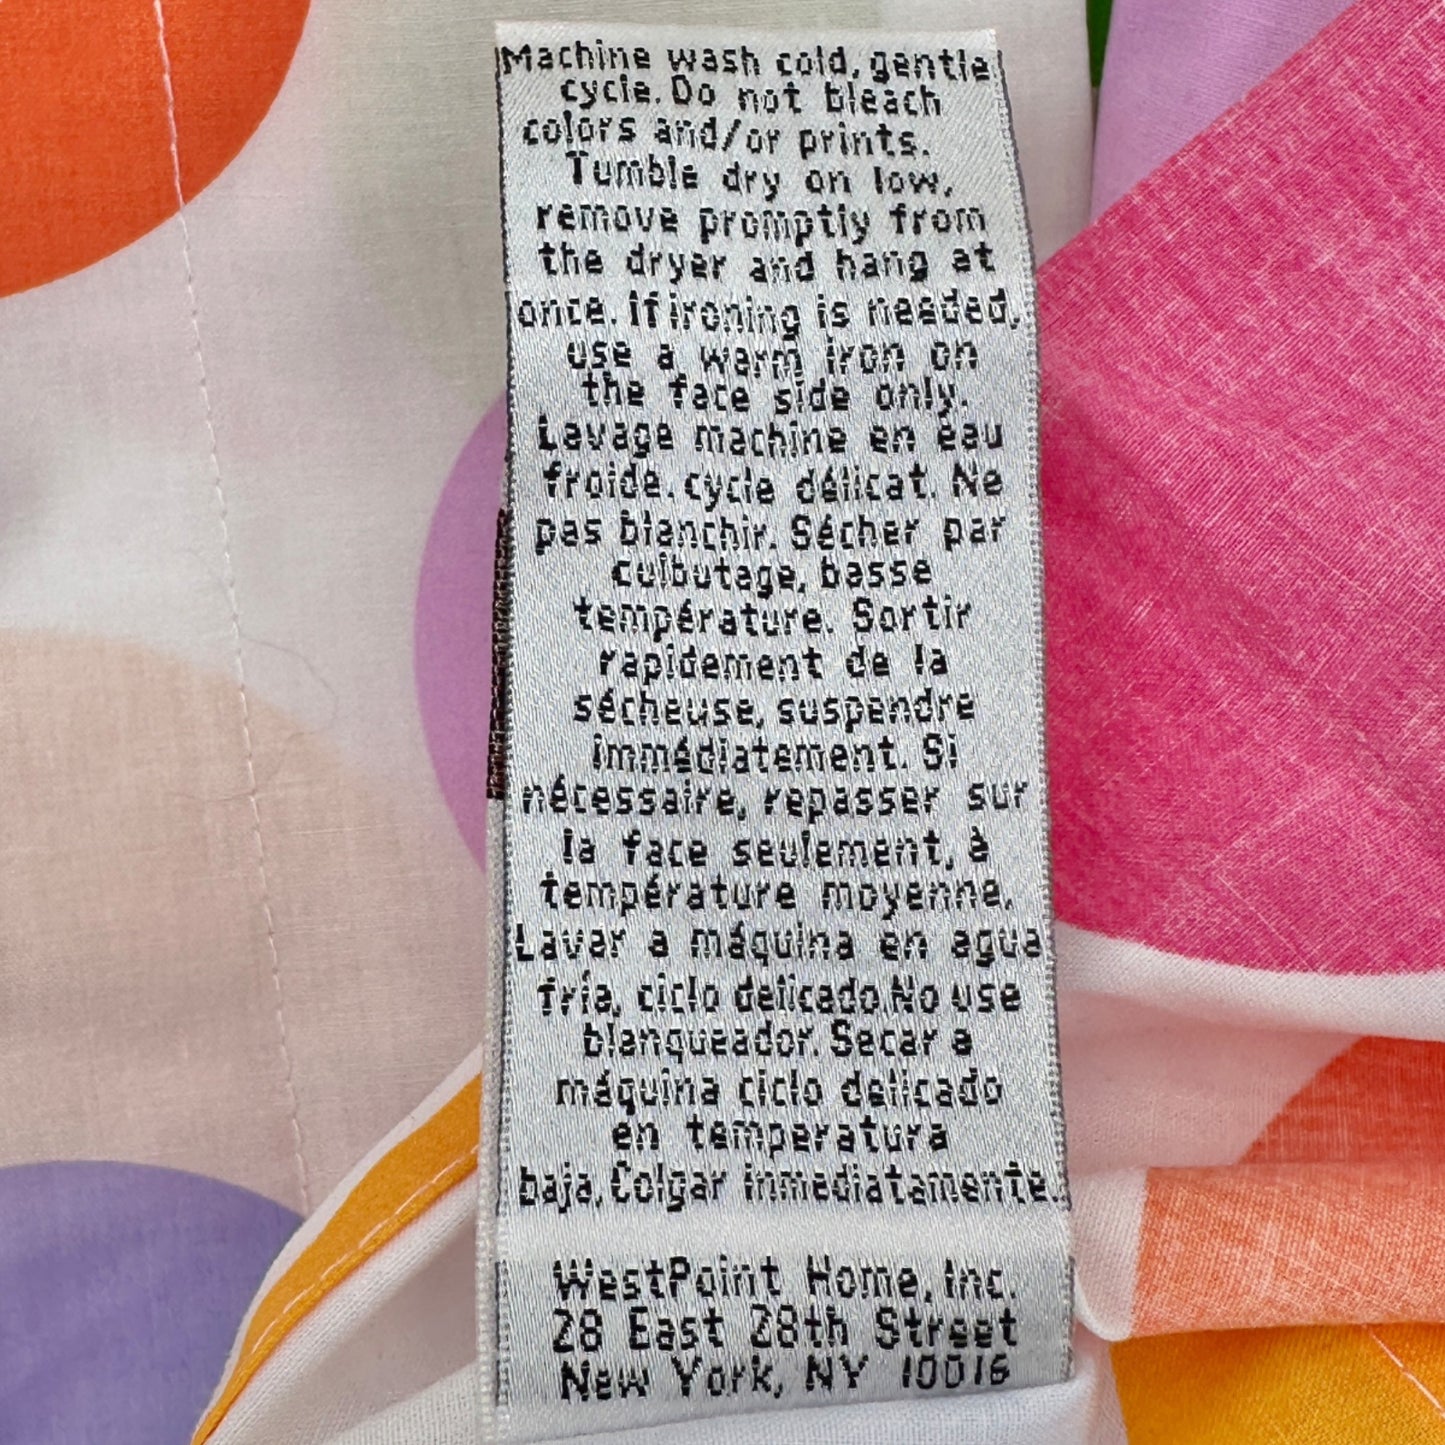 Machine wash cold, gentle
cycle. Do not bleach
colors and/or prints.
Tumble dry on low,
remove promptly from
the dryer and hang at
once. If ironing is needed,
use a warm iron on
the face side only.
Lavage machine en eau
froide. cycle délicat. Ne
pas blanchir. Sécher par
culbutage, basse
température. Sortir
rapidement de la
sécheuse, suspendre
immédiatement. Si
nécessaire, repasser sur
la face seulement, à
température moyenne.
Lavar a máquina en agua
fría, ciclo delicado.No use
blanqueador. Secar a
máquina ciclo delicado
en temperatura
baja, Colgar inmediatamente.
WestPoint Home, Inc.
28 East 28th Street
New York, NY 10016